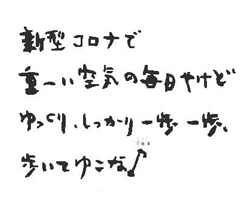 新型コロナで
重ーい空気の毎日やけど
ゆっくり、しっかり一歩一歩、
歩いてゆこな♪